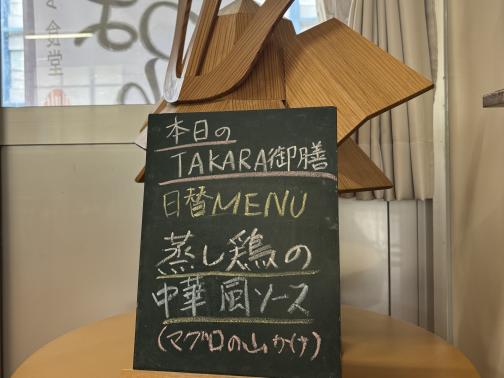 食堂
本日の
TAKARA御膳
日替MENU
蒸し鶏の
中華風ソース
(マグロの山かけ)